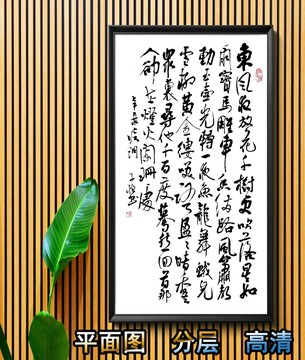 東風夜放花千樹更吹落星如
雨寶馬雕車香滿路風簫聲
動玉壺光轉一夜魚龍舞蛾兒
雪柳黃金縷笑語盈盈暗香去
眾裏尋他千百度驀然回首那
人卻在燈火闌珊處
平面图 分层 高清